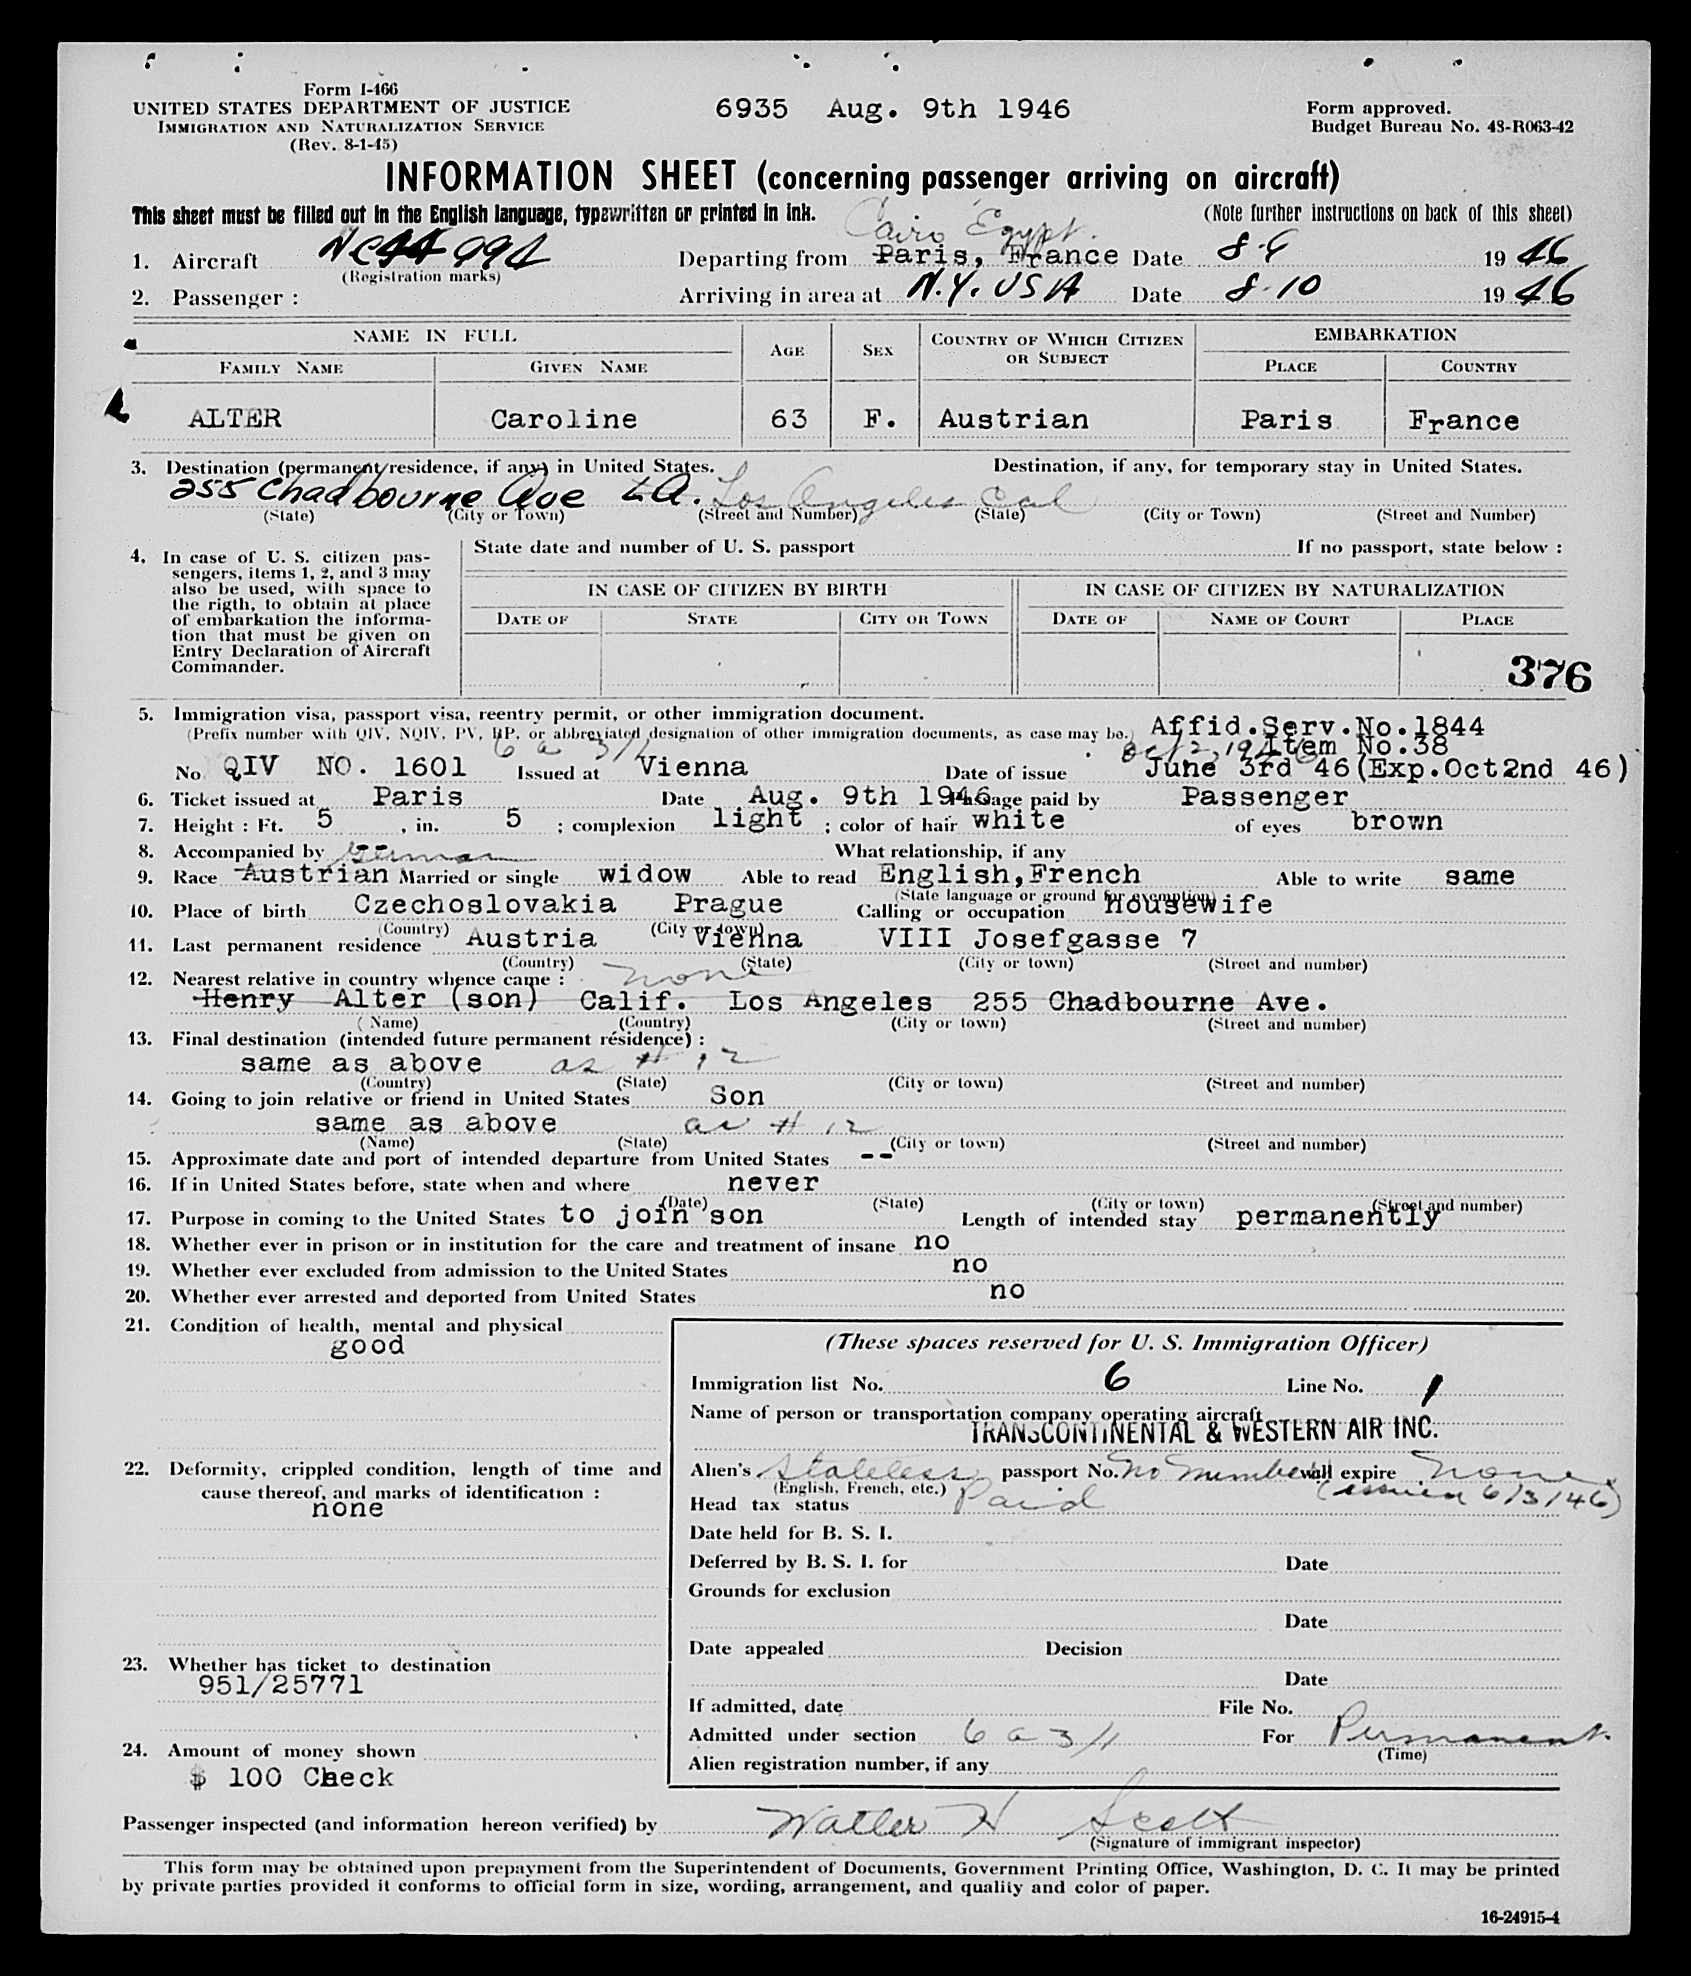 Form I-466
UNITED STATES DEPARTMENT OF JUSTICE
IMMIGRATION AND NATURALIZATION SERVICE
(Rev. 8-1-45)
6935 Aug. 9th 1946
Form approved.
Budget Bureau No. 43-R063-42
INFORMATION SHEET (concerning passenger arriving on aircraft)
This sheet must be filled out in the English language, typewritten or printed in ink. (Note further instructions on back of this sheet)
Cairo Egypt.
1. Aircraft Departing from Paris, France Date 8-9 1946
(Registration marks)
2. Passenger : Arriving in area at N.Y. USA Date 8-10 1946
NAME IN FULL AGE SEX COUNTRY OF WHICH CITIZEN OR SUBJECT EMBARKATION
FAMILY NAME GIVEN NAME PLACE COUNTRY
ALTER Caroline 63 F. Austrian Paris France
3. Destination (permanent residence, if any) in United States. Destination, if any, for temporary stay in United States.
255 Chadbourne Ave LA. Los Angeles Cal
(State) (City or Town) (Street and Number) (State) (City or Town) (Street and Number)
4. In case of U. S. citizen pas-
sengers, items 1, 2, and 3 may
also be used, with space to
the rigth, to obtain at place
of embarkation the informa-
tion that must be given on
Entry Declaration of Aircraft
Commander.
State date and number of U. S. passport If no passport, state below :
IN CASE OF CITIZEN BY BIRTH IN CASE OF CITIZEN BY NATURALIZATION
DATE OF STATE CITY OR TOWN DATE OF NAME OF COURT PLACE
376
5. Immigration visa, passport visa, reentry permit, or other immigration document.
(Prefix number with QIV, NQIV, PV, RP, or abbreviated designation of other immigration documents, as case may be.) Affid.Serv.No.1844
6 a 3/1 Oct 2, 1946 Item No.38
No. QIV NO. 1601 Issued at Vienna Date of issue June 3rd 46(Exp.Oct2nd 46)
6. Ticket issued at Paris Date Aug. 9th 1946 Passage paid by Passenger
7. Height : Ft. 5 , in. 5 ; complexion light ; color of hair white of eyes brown
8. Accompanied by What relationship, if any
German
9. Race Austrian Married or single widow Able to read English,French Able to write same
(State language or ground for exemption)
10. Place of birth Czechoslovakia Prague Calling or occupation housewife
(Country) (City or town)
11. Last permanent residence Austria Vienna VIII Josefgasse 7
(Country) (State) (City or town) (Street and number)
12. Nearest relative in country whence came : none
Henry Alter (son) Calif. Los Angeles 255 Chadbourne Ave.
(Name) (Country) (City or town) (Street and number)
13. Final destination (intended future permanent résidence) :
same as above as # 12
(Country) (State) (City or town) (Street and number)
14. Going to join relative or friend in United States Son
same as above as # 12
(Name) (State) (City or town) (Street and number)
15. Approximate date and port of intended departure from United States --
16. If in United States before, state when and where never
(Date) (State) (City or town) (Street and number)
17. Purpose in coming to the United States to join son Length of intended stay permanently
18. Whether ever in prison or in institution for the care and treatment of insane no
19. Whether ever excluded from admission to the United States no
20. Whether ever arrested and deported from United States no
21. Condition of health, mental and physical
good
22. Deformity, crippled condition, length of time and
cause thereof, and marks of identification :
none
23. Whether has ticket to destination
951/25771
24. Amount of money shown
$ 100 Check
(These spaces reserved for U. S. Immigration Officer)
Immigration list No. 6 Line No. 1
Name of person or transportation company operating aircraft
TRANSCONTINENTAL & WESTERN AIR INC.
Alien's Stateless passport No. No Number will expire None
(English, French, etc.) (issued 6/3/46)
Head tax status Paid
Date held for B. S. I.
Deferred by B. S. I. for Date
Grounds for exclusion
Date
Date appealed Decision
Date
If admitted, date File No.
Admitted under section 6 a 3/1 For Permanent
(Time)
Alien registration number, if any
Passenger inspected (and information hereon verified) by Walter H Scott
(Signature of immigrant inspector)
This form may be obtained upon prepayment from the Superintendent of Documents, Government Printing Office, Washington, D. C. It may be printed
by private parties provided it conforms to official form in size, wording, arrangement, and quality and color of paper.
16-24915-4